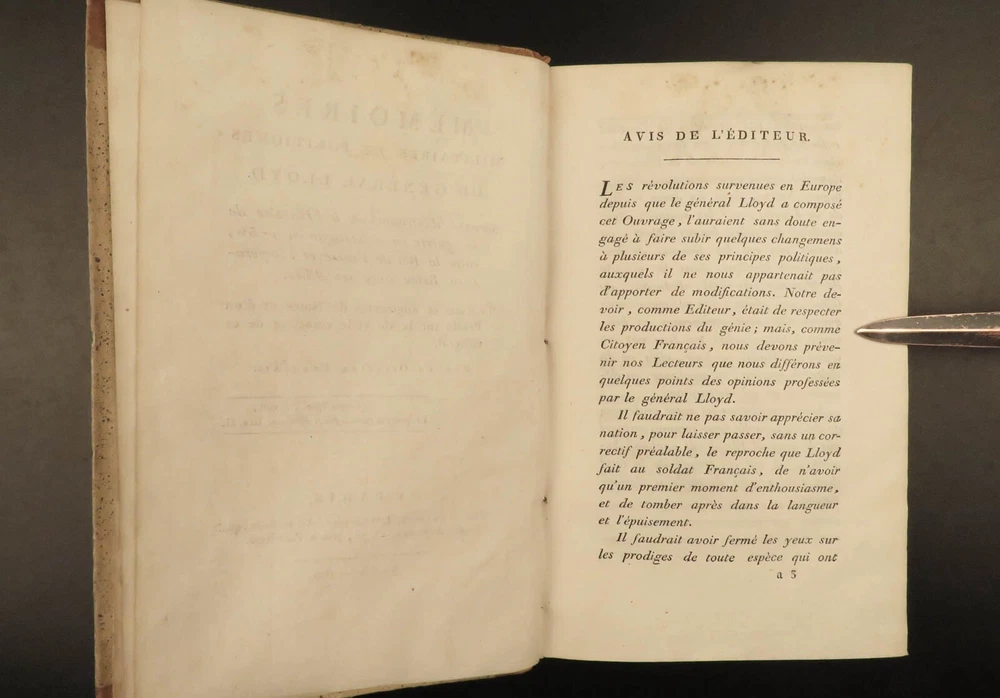 AVIS DE L'ÉDITEUR.
LES révolutions survenues en Europe
depuis que le général Lloyd a composé
cet Ouvrage, l'auraient sans doute en-
gagé à faire subir quelques changemens
à plusieurs de ses principes politiques,
auxquels il ne nous appartenait pas
d'apporter de modifications. Notre de-
voir, comme Editeur, était de respecter
les productions du génie; mais, comme
Citoyen Français, nous devons préve-
nir nos Lecteurs que nous différons en
quelques points des opinions professées
par le général Lloyd.
Il faudrait ne pas savoir apprécier sa
nation, pour laisser passer, sans un cor-
rectif préalable, le reproche que Lloyd
fait au soldat Français, de n'avoir
qu'un premier moment d'enthousiasme,
et de tomber après dans la langueur
et l'épuisement.
Il faudrait avoir fermé les yeux sur
les prodiges de toute espèce qui ont
a 3